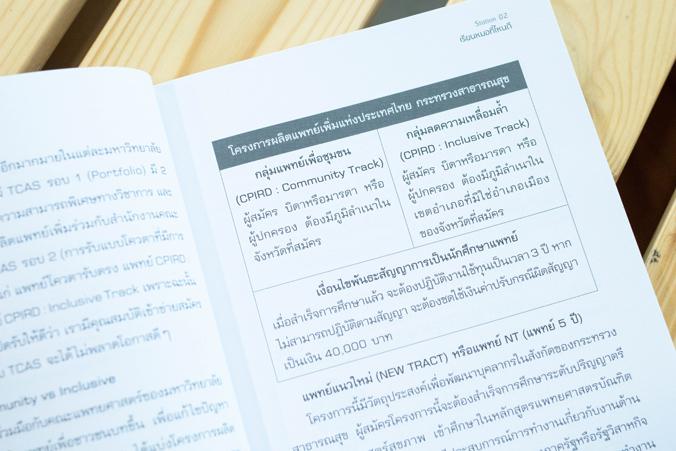 อีกมากมายในแต่ละมหาวิทยาลัย
TCAS รอบ 1 (Portfolio) มี 2
ความสามารถพิเศษทางวิชาการ และ
ผลิตแพทย์เพิ่มร่วมกับสำนักงานคณะ
TCAS รอบ 2 (การรับแบบโควตาที่มีการ
แก่ แพทย์โควตารับตรง แพทย์ CPIRD
CPIRD : Inclusive Track เพราะฉะนั้น
เปิดรับให้ดีว่า เรามีคุณสมบัติเข้าข่ายสมัคร
TCAS จะได้ไม่พลาดโอกาสดี ๆ
munity vs Inclusive
ร่วมมือกับคณะแพทยศาสตร์ของมหาวิทยาลัย
แพทย์เพื่อชาวชนบทขึ้น เพื่อแก้ไขปัญหา
ได้แบ่งโครงการผลิต
Station 02
เรียนหมอที่ไหนดี
โครงการผลิตแพทย์เพิ่มแห่งประเทศไทย กระทรวงสาธารณสุข
กลุ่มแพทย์เพื่อชุมชน
(CPIRD : Community Track)
ผู้สมัคร บิดาหรือมารดา หรือ
ผู้ปกครอง ต้องมีภูมิลำเนาใน
จังหวัดที่สมัคร
กลุ่มลดความเหลื่อมล้ำ
(CPIRD : Inclusive Track)
ผู้สมัคร บิดาหรือมารดา หรือ
ผู้ปกครอง ต้องมีภูมิลำเนาใน
เขตอำเภอที่มิใช่อำเภอเมือง
ของจังหวัดที่สมัคร
เงื่อนไขพันธะสัญญาการเป็นนักศึกษาแพทย์
เมื่อสำเร็จการศึกษาแล้ว จะต้องปฏิบัติงานใช้ทุนเป็นเวลา 3 ปี หาก
ไม่สามารถปฏิบัติตามสัญญา จะต้องชดใช้เงินค่าปรับกรณีผิดสัญญา
เป็นเงิน 40,000 บาท
แพทย์แนวใหม่ (NEW TRACT) หรือแพทย์ NT (แพทย์ 5 ปี)
โครงการนี้มีวัตถุประสงค์เพื่อพัฒนาบุคลากรในสังกัดของกระทรวง
สาธารณสุข ผู้สมัครโครงการนี้จะต้องสำเร็จการศึกษาระดับปริญญาตรี
เข้าศึกษาในหลักสูตรแพทยศาสตรบัณฑิต
ประสบการณ์การทำงานเกี่ยวกับงานด้าน
ภาครัฐหรือรัฐวิสาหกิจ